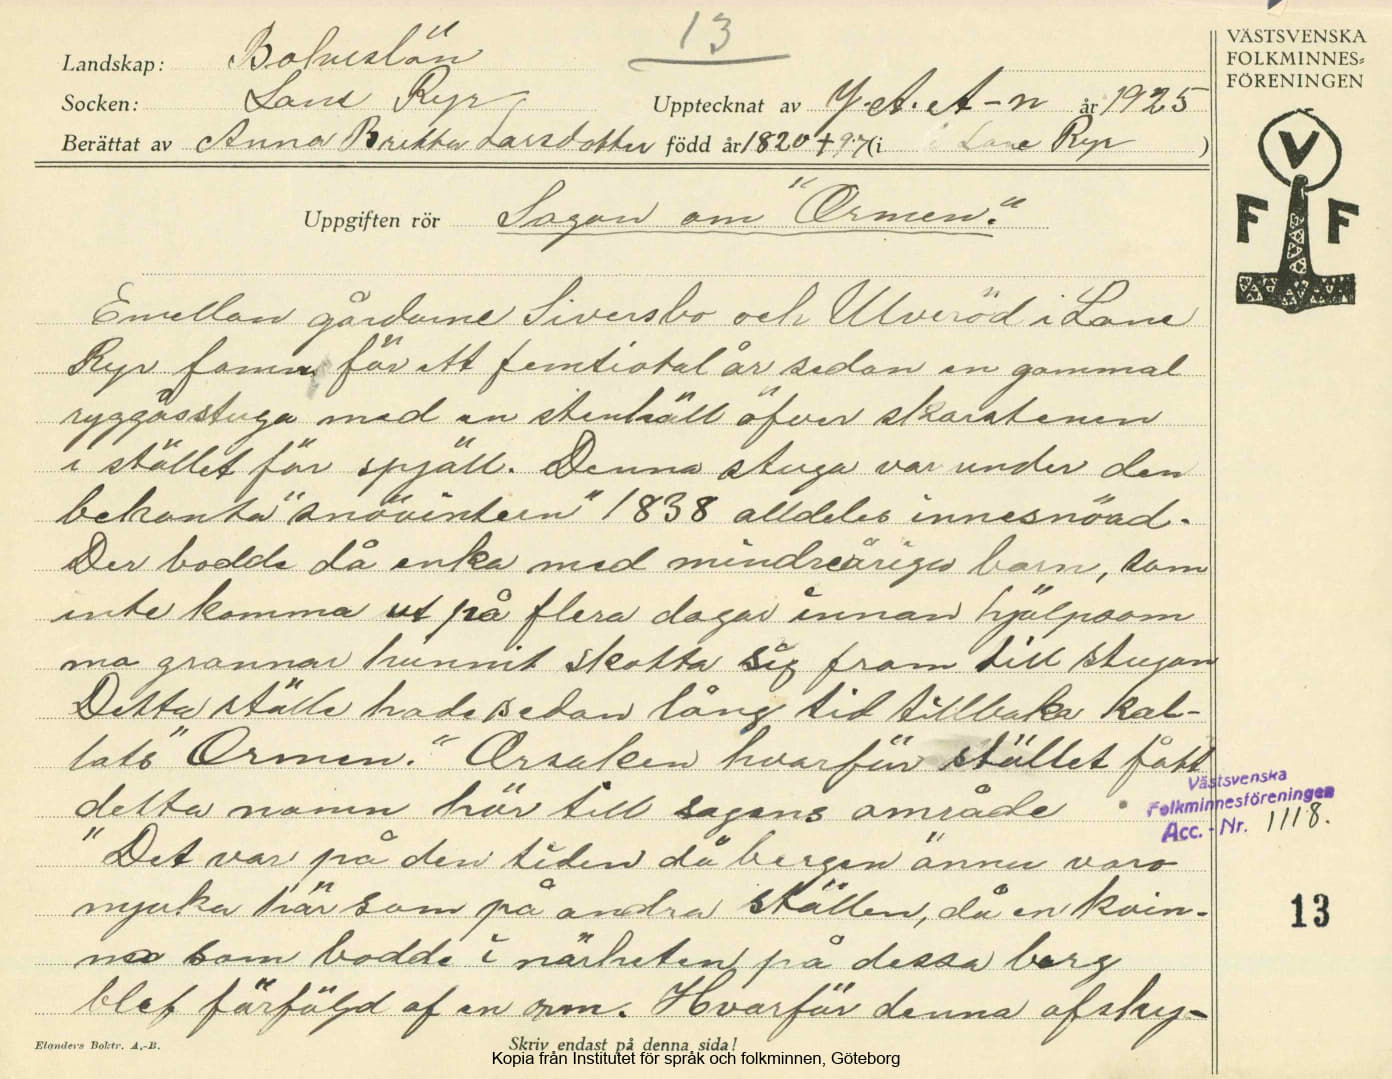 13
VÄSTSVENSKA
FOLKMINNES=
FÖRENINGEN
V
F F
Landskap: Bohuslän
Socken: Lane Ryr
Upptecknat av Y. A. A-n år 1925
Berättat av Anna Britta Larsdotter född år 1820 + 97 (i Lane Ryr)
Uppgiften rör Sagan om "Ormen."
Emellan gårdarne Siversbo och Ulveröd i Lane
Ryr fanns för ett femtiotal år sedan en gammal
ryggåsstuga med en stenhäll öfver skorstenen
i stället för spjäll. Denna stuga var under den
bekanta "snövintern" 1838 alldeles innesnöad.
Der bodde då enka med mindreåriga barn, som
inte komma ut på flera dagar innan hjälpsam
ma grannar hunnit skotta sig fram till stugan
Detta ställe hade sedan lång tid tillbaka kal-
lats "Ormen." Orsaken hvarför stället fått
detta namn hör till sagans område
"Det var på den tiden då bergen ännu voro
mjuka här som på andra ställen, då en kvin-
na som bodde i närheten på dessa berg
blef förföljd af en orm. Hvarför denna afsky-
Västsvenska
Folkminnesföreningen
Acc.-Nr. 1118.
13
Elanders Boktr. A.-B.
Skriv endast på denna sida!
Kopia från Institutet för språk och folkminnen, Göteborg